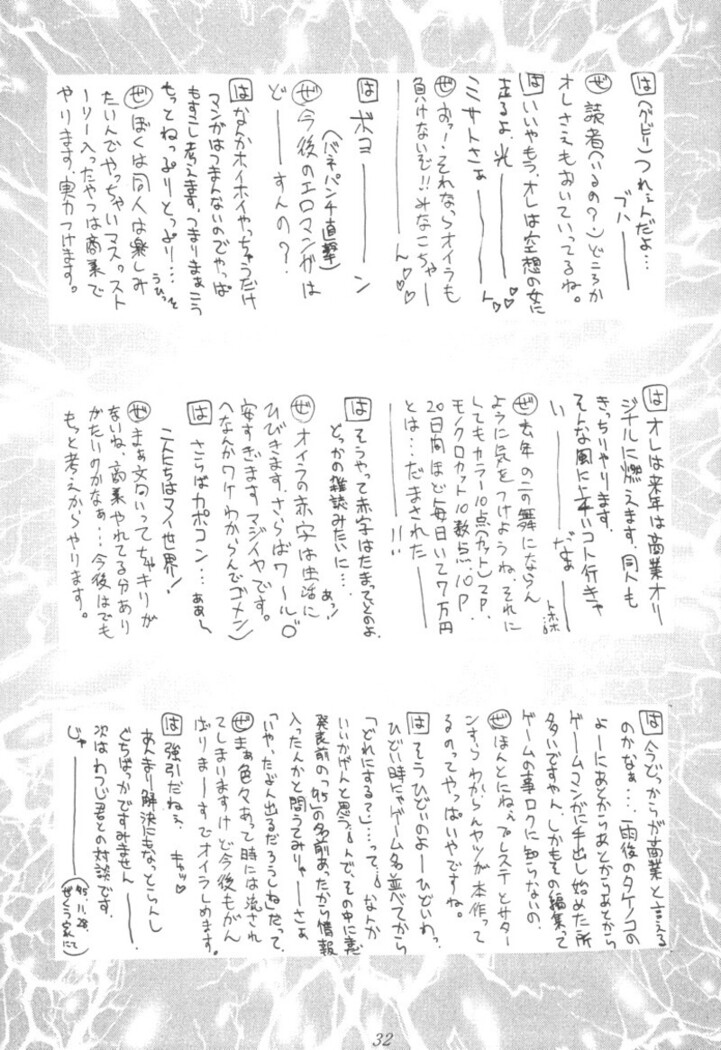 は (グビリ)つれぇんだよ…
ブハ――
ぜ 読者(いるの?)どころか
オレさえもおいていってるね。
は いいやもう、オレは空想の女に
走るよ、光―――ん♡♡
ミサトさぁ―――ん♡♡
ぜ おっ!それならオイラも
負けないぞ!!みなこちゃ――
―――ん♡♡
は ボコ―――ン
(バネパンチ直撃)
ぜ 今後のエロマンガは
ど――すんの?
は なんかホイホイやっちゃうだけ
マンガはつまんないのでやっぱ
もすこし考えます、つまりまぁこう
もってねっぷりとっぷり…うひっ
ぜ ぼくは同人は楽しみ
たいんでやっちゃいマスのスト
ーリー入ったやつは商業で
やります、実力つけます。
は オレは来年は商業オリ
ジナルに燃えます、同人も
きっちりやります。
そんな風に上手いコト行きゃ
い―――だぁょ
トホホ
ぜ 去年の二の舞にならん
ように気をつけようね、それに
してもカラー10点(カット)2P、
モノクロカット10数点、10P
20日間ほど毎日いて7万円
とは…だまされた――
―――!!
は そうやって赤字はたまってくのよ、
どっかの雑誌みたいに…
あっ!
ぜ オイラの赤字は生活に
ひびきます、さらばワールド
安すぎます、マジイヤです。
(なんかワケわからんでゴメン)
は さらばカポコン…ああ〜
こんにちはマイ世界!
ぜ まぁ文句いってちゃキリが
ないね、商業やれてる分あり
がたいのかなぁ…今後はでも
もっと考えからやります。
は 今どっからが商業と言える
のかなぁ…、雨後のタケノコの
よーにあとからあとからあとから
ゲームマンガに手出し始めた所
多いですやん、しかもその編集って
ゲームの事ロクに知らないの、
ぜ ほんとにねぇプレステとサター
ンすらわからんヤツが本作って
るのってやっぱいやですね。
は そうひどいのよーひどいわっ、
ひどい時にゃゲーム名並べてから
「どれにする?」…って…なんか
いいかげんと思う…んで、その中に未
発表前の「'95」の名前あったから情報
入ったんかと問うてみりゃーさぁ
「いや、たぶん出るだろうしね」だって、
ぜ まぁ色々あって時には流され
てしまいますけど今後もがん
ばりまーすでオイラしめます。
は 強引だねぇ、キャッ♡
あんまり解決にもなっとらんし
ぐちばっかですみません――、
次はわつじ君との対談です。
じゃ―――
('95.11.28.
ぜくうかんにて)
32